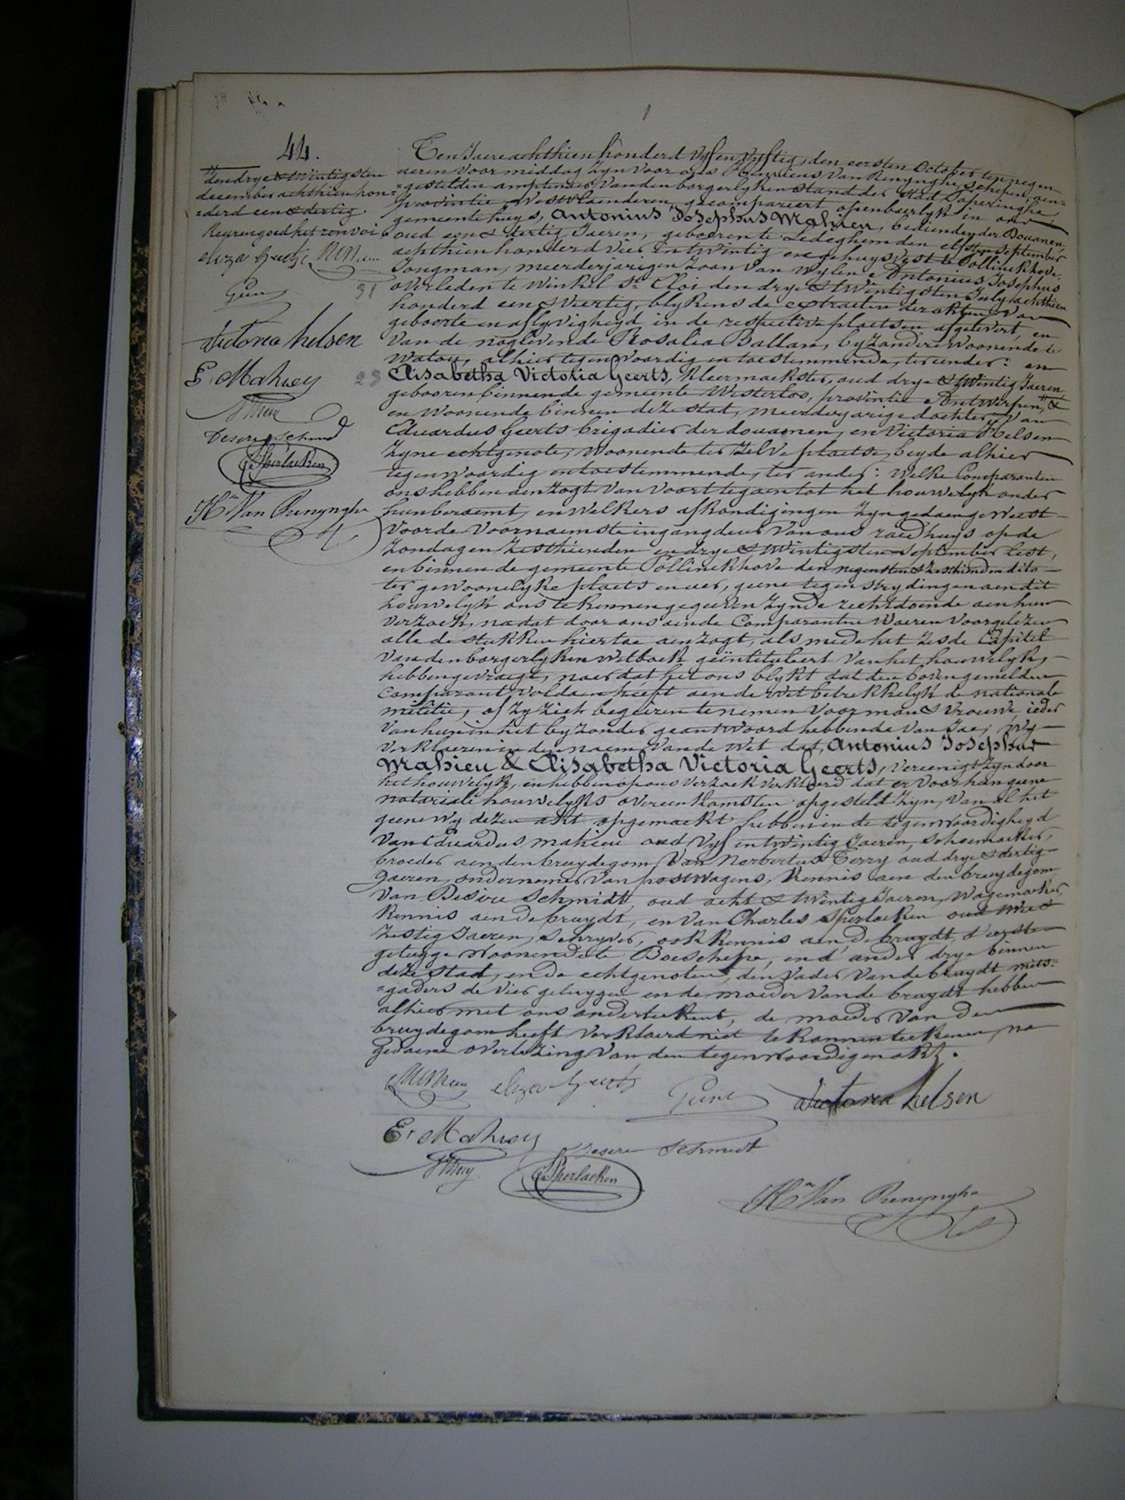 44.
den drye & twintigsten
december achthien hon-
derd een & dertig.
Keuren goed het renvoi
eliza Geerts
Victoria helsen
Er Mahieu
Desire Schmidt
C. Sperlaeken
Hn Van Renynghe
31
23
Ten Jaere achthien honderd vyf en vyftig, den eersten October ten negen
aeren voor middag zyn voor ons Henricus Van Renynghe schepen, aen-
=gestelden amptenaer van den borgerlyken stand der stad Poperinghe
provintie Westvlaenderen, gecompareert openbaerlyk in ons
gemeente huys, Antonius Josephus Mahieu, bediende der Douanen,
oud een & dertig Jaeren, geboren te Ledeghem den elfsten september
achthien honderd vier en twintig en gehuysvest te Pollinckhove
Jongman, meerderjarigen zoon van wylen Antonius Josephus
overleden te Winkel St Eloi den drye & twintigsten July achthien
honderd een & veertig, blykens de extracten der akten van
geboorte en aflyvigheyd in de respective plaetsen afgelevert, en
van de nagelaeten Rosalia Ballan, byzondere woonende te
Watou, alhier tegenwoordig en toestemmende, ter eender: en
Elisabetha Victoria Geerts, Kleermaekster, oud drye & twintig Jaeren
geboren binnen de gemeente Westerloo, provintie Antwerpen, &
en woonende binnen deze stat, meerderjarige dochter van
Eduardus Geerts brigadier der douanen, en Victoria Helsen
zyne echtgenote, woonende ter zelve plaetse, beyde alhier
tegenwoordig en toestemmende, ter ander: Welke Comparanten
ons hebben aenzogt van voort te gaen tot het houwelyk onder
hun beraemt, en welkers afkondigingen zyn gedaen geweest
voor de voornaemste ingangdeur van ons raedhuys op de
zondagen zesthienden en drye & twintigsten september lest,
en binnen de gemeente Pollinckhove den negensten & zesthienden dito
ter gewoonelyke plaets en uer, geene tegenstrydingen aen dit
houwelyk ons te kennen gegeven zynde rechtdoende aen hun
verzoek, na dat door ons aen de Comparanten waeren voorgelezen
alle de stukken hier toe aenzogt, als mede het zesde Capitel
van den borgerlyken wetboek geintituleert van het houwelyk,
hebben gevraegt, naer dat het ons blykt dat den bovengemelden
Comparant voldaen heeft aen de wet betrekkelyk de nationale
militie, of zy zich begeiren te nemen voor man & vrouwe, ieder
van hun in het byzonder geantwoord hebbende van Jae, wy
verklaeren in den naem van de wet dat, Antonius Josephus
Mahieu & Elisabetha Victoria Geerts, vereenigt zyn door
het houwelyk, en hebben op ons verzoek verklaerd dat er voorhan geene
notariele houwelyks overeenkomsten opgesteld zyn, van al het
geene wy dezen akt opgemaekt hebben in de tegenwoordigheyd
van Eduardus Mahieu oud vyf en twintig Jaeren, schoenmaeker,
broeder aen den bruydegom, van Norbertus Terry oud drye & dertig
Jaeren, ondernemer van postwagens, Kennis aen den bruydegom
van Desire Schmidt, oud acht & twintig Jaeren, Wagemaeker,
Kennis aen de bruydt, en van Charles Sperlaeken oud
zestig Jaeren, schryver, ook kennis aen de bruydt, d'eerste
getuyge woonende te Boeschepe, en d'ander drye binnen
deze stad, en de echtgenoten, den vader van de bruydt mits-
=gaders de vier getuygen en de moeder van de bruydt hebben
alhier met ons onderteekent, de moeder van den
bruydegom heeft verklaerd niet te konnen teekenen, na
gedaene overlezing van den tegenwoordigen akt.
eliza Geerts
Victoria helsen
Er Mahieu
Desire Schmidt
C. Sperlaeken
Hn Van Renynghe